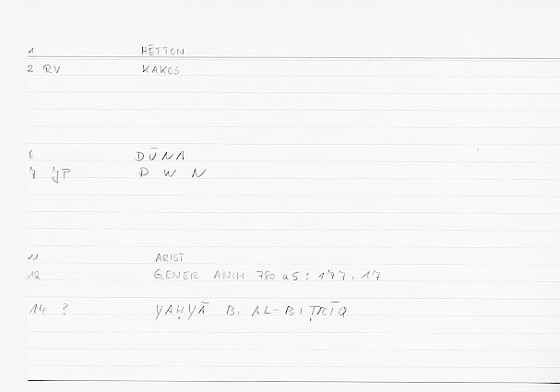 1 HĒTTON
2 RV KAKOS
6 DŪNA
7 JP D W N
11 ARIST
12 GENER ANIM 780 a5 : 177, 17
14 ? YAḤYĀ B. AL-BIṬRĪQ